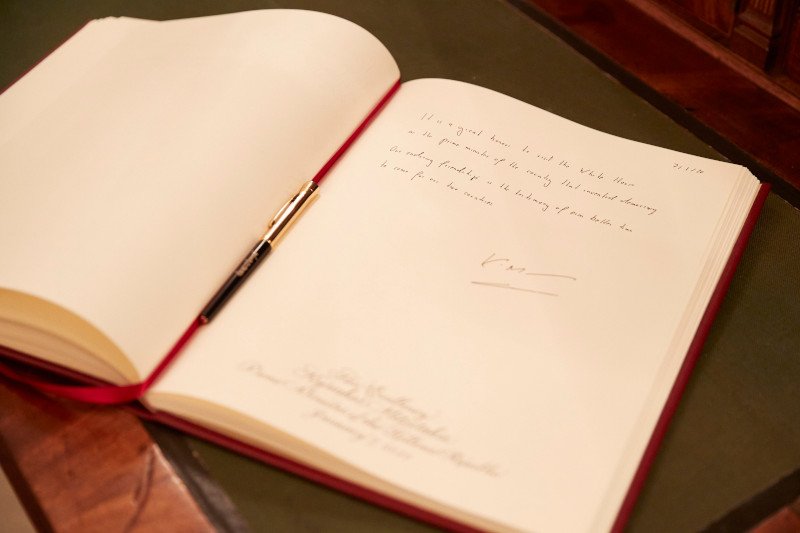 It is a great honor to visit the White House
as the prime minister of the country that invented democracy
Our enduring friendship is the testimony of even better days
to come for our two countries
7/1/20
K. M
His Excellency
Kyriakos Mitsotakis
Prime Minister of the Hellenic Republic
January 7, 2020